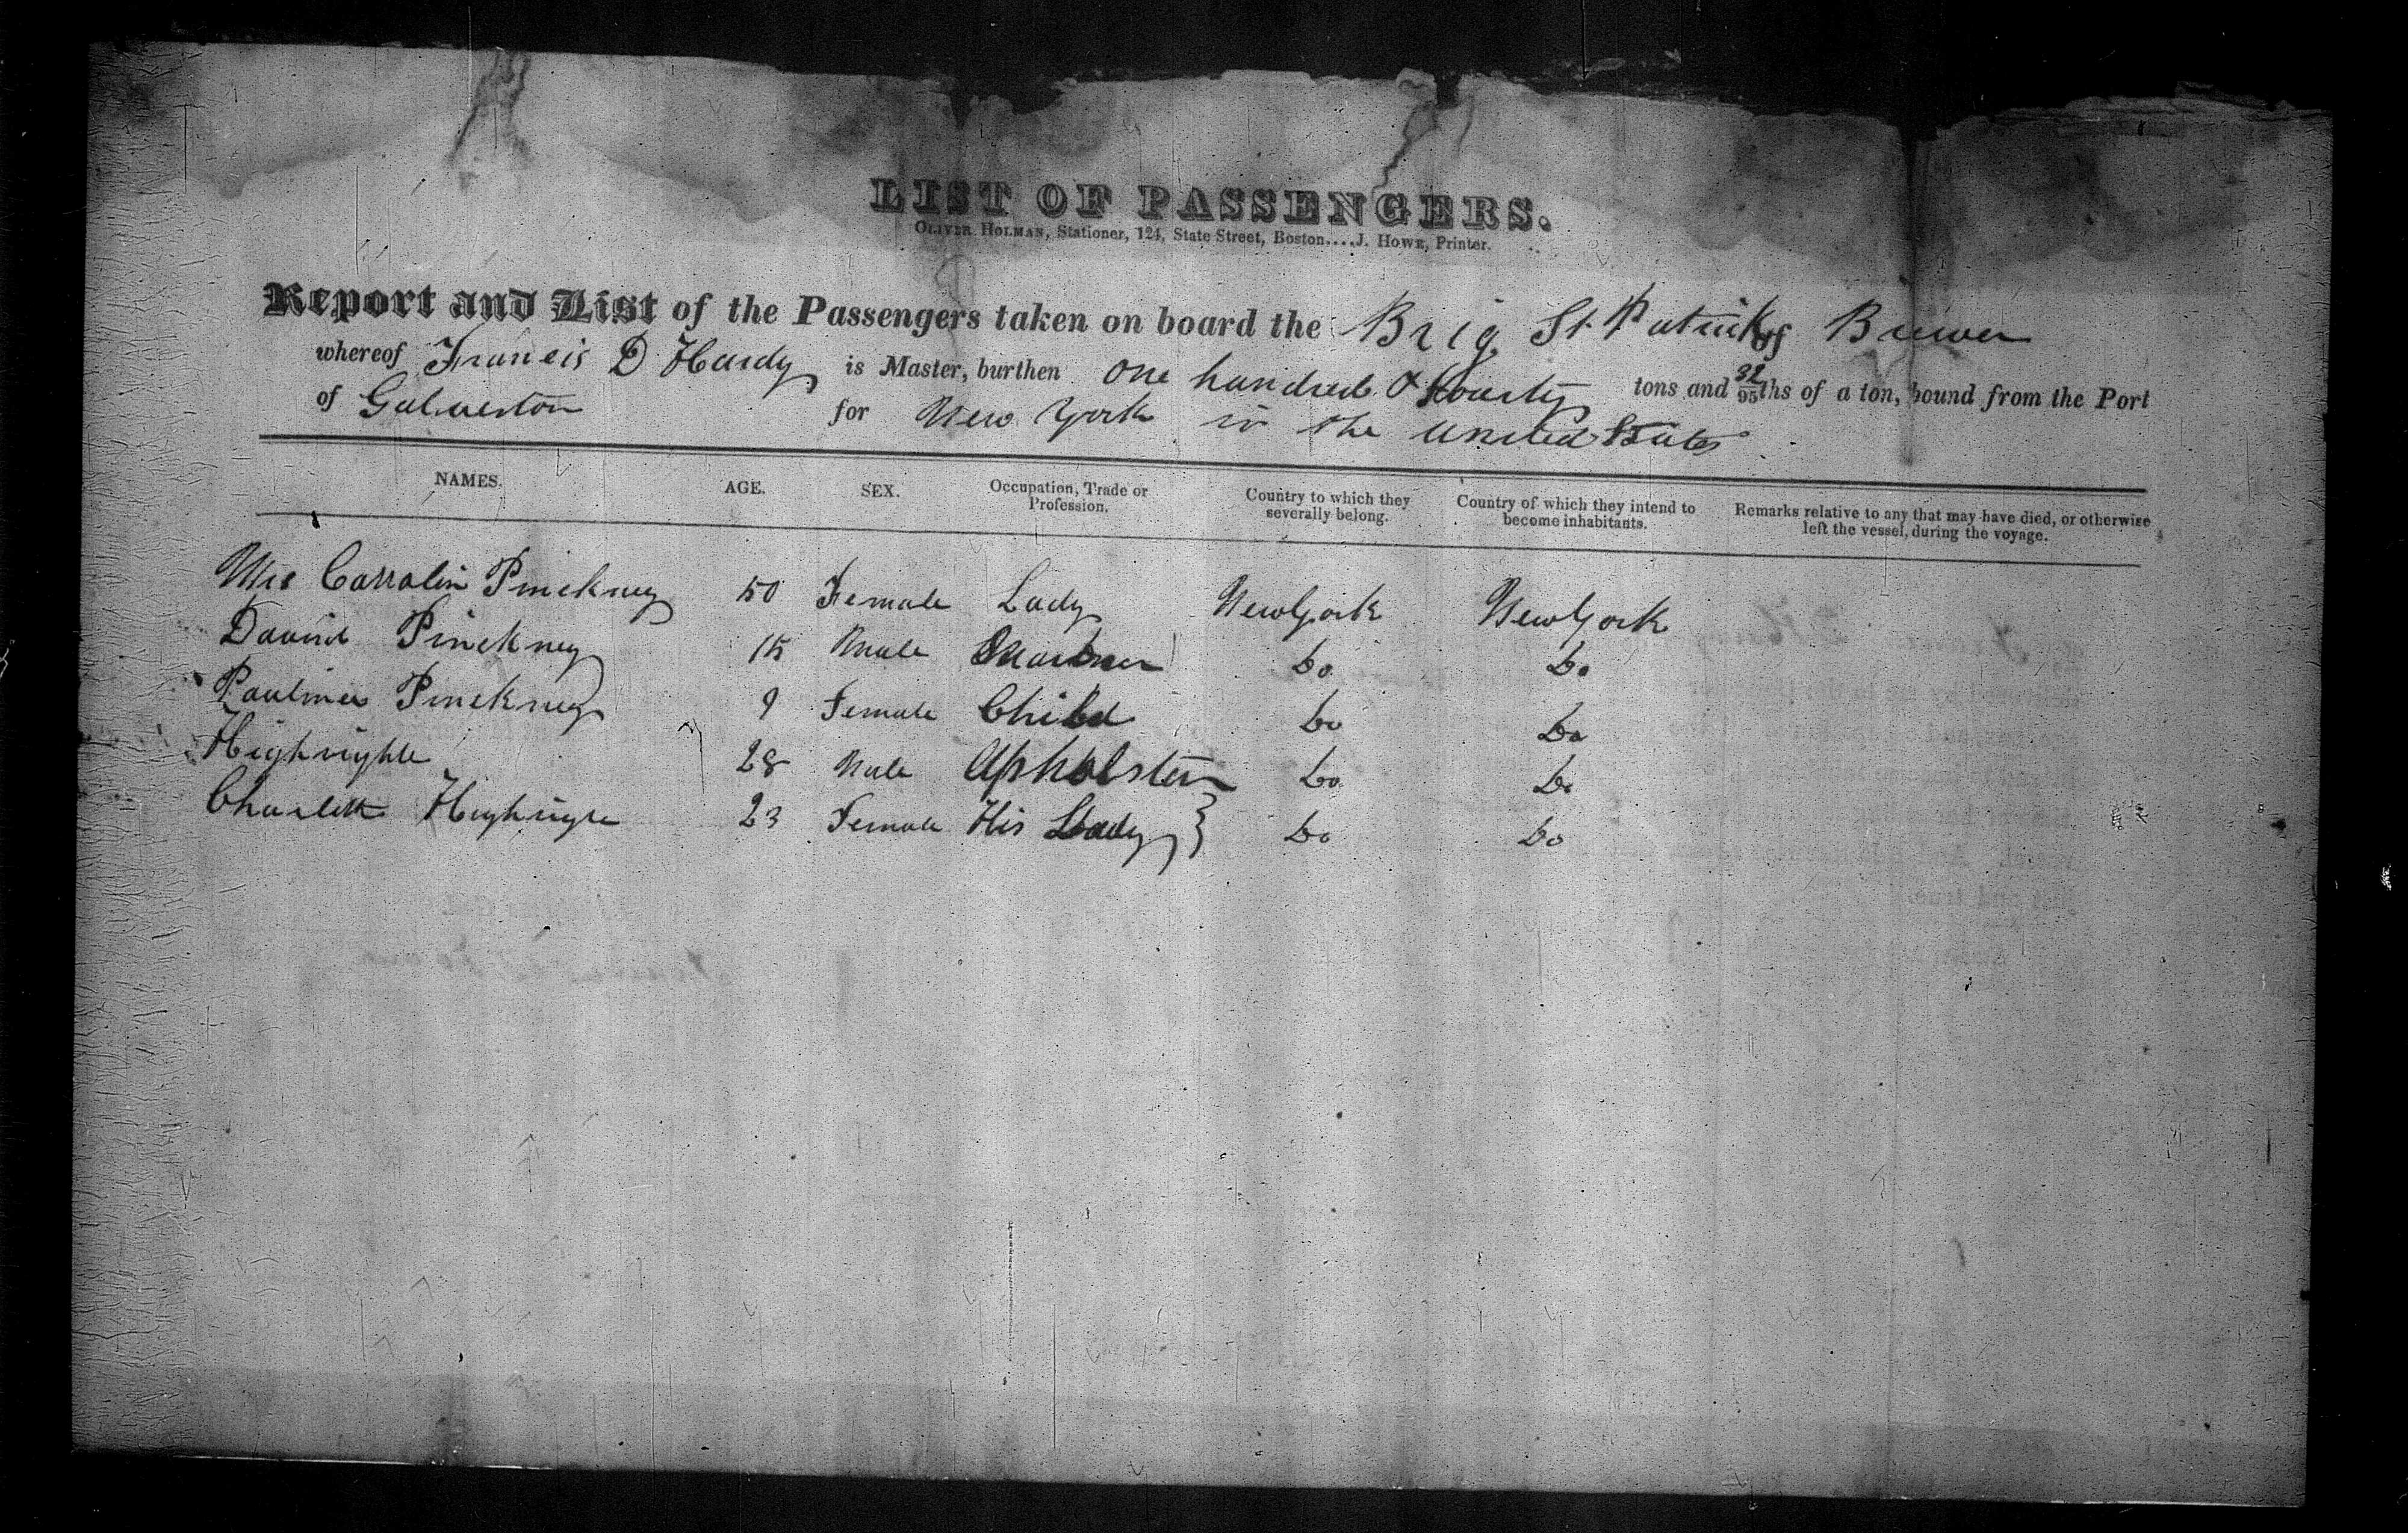 LIST OF PASSENGERS.
OLIVER HOLMAN, Stationer, 124, State Street, Boston....J. HOWE, Printer.
Report and List of the Passengers taken on board the Brig St. Patrick of Brewer
whereof Francis D Hardy is Master, burthen one hundred & fourty tons and 32/95ths of a ton, bound from the Port
of Galveston for New York in the United States
NAMES. AGE. SEX. Occupation, Trade or Profession. Country to which they severally belong. Country of which they intend to become inhabitants. Remarks relative to any that may have died, or otherwise left the vessel, during the voyage.
Mrs Carralin Pinckney 50 Female Lady New York New York
David Pinckney 15 Male Do Do
Paulina Pinckney 9 Female Child Do Do
28 Male Upholster Do Do
23 Female His Lady } Do Do